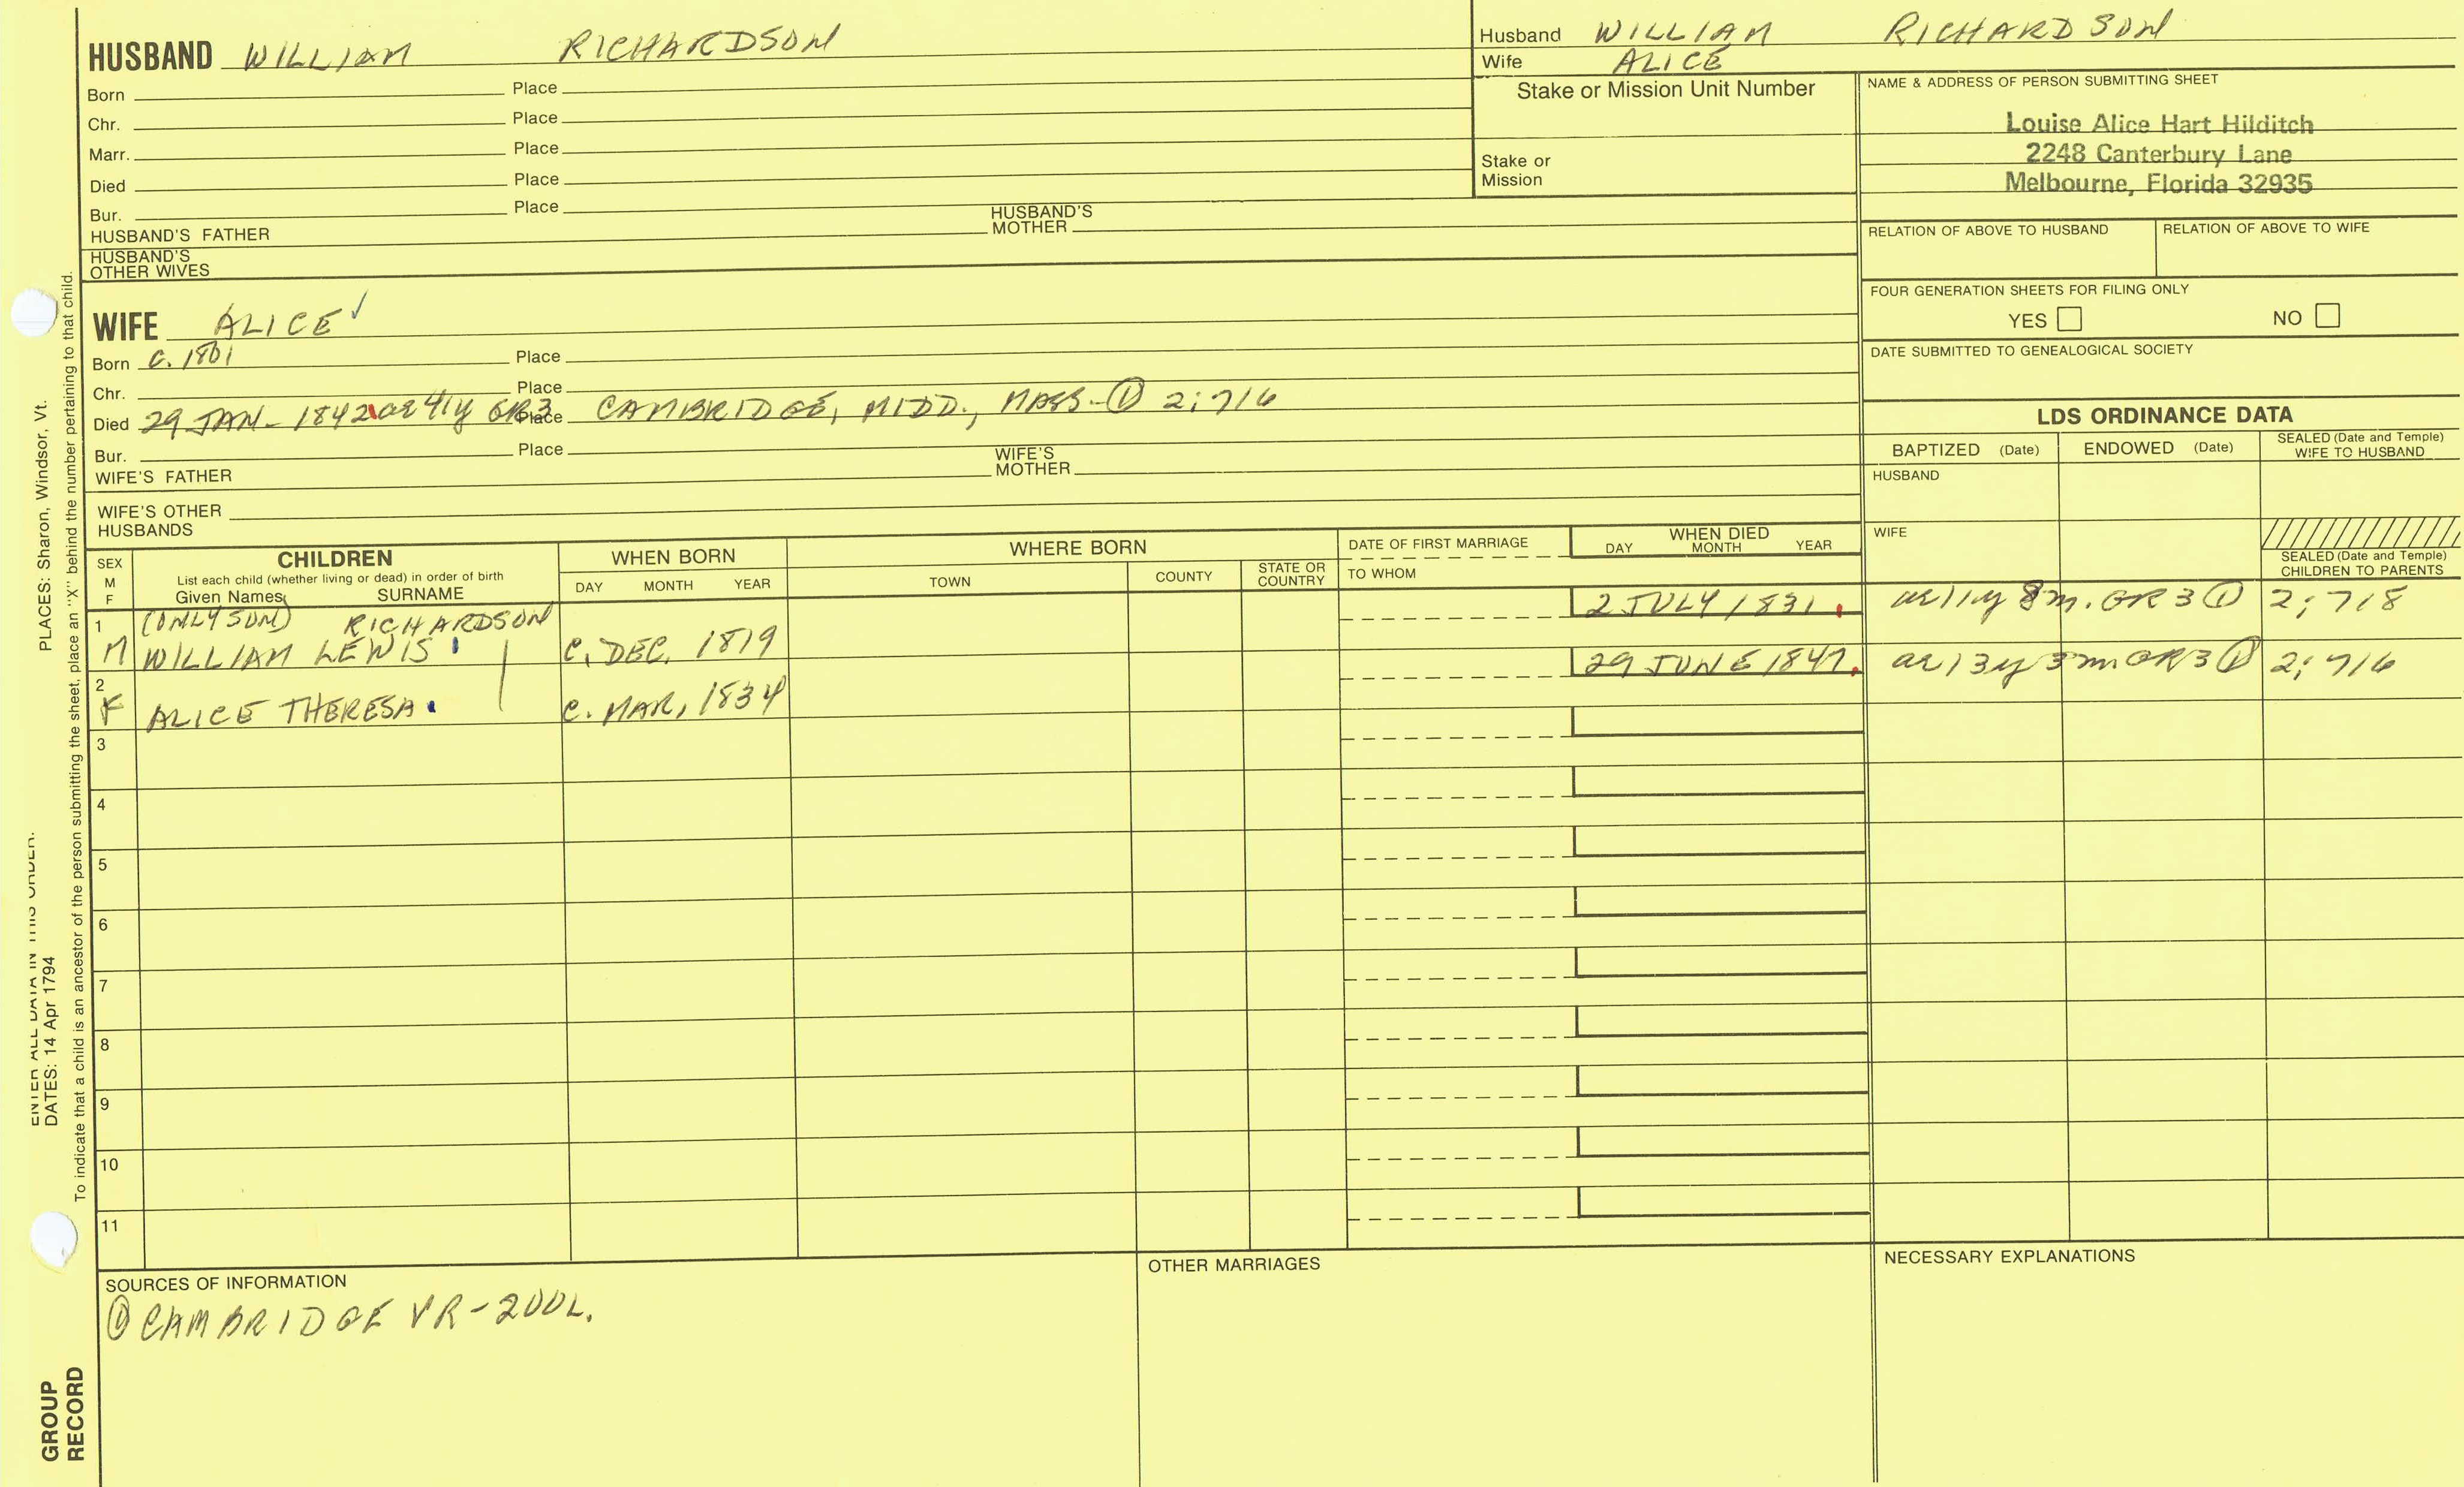 HUSBAND WILLIAM RICHARDSON
Born Place
Chr. Place
Marr. Place
Died Place
Bur. Place
HUSBAND'S FATHER HUSBAND'S MOTHER
HUSBAND'S OTHER WIVES
Husband WILLIAM RICHARDSON
Wife ALICE
Stake or Mission Unit Number
Stake or Mission
NAME & ADDRESS OF PERSON SUBMITTING SHEET
Louise Alice Hart Hilditch
2248 Canterbury Lane
Melbourne, Florida 32935
RELATION OF ABOVE TO HUSBAND RELATION OF ABOVE TO WIFE
FOUR GENERATION SHEETS FOR FILING ONLY
YES NO
DATE SUBMITTED TO GENEALOGICAL SOCIETY
WIFE ALICE
Born C. 1801 Place
Chr. Place
Died 29 JAN. 1842 ae 41y GR3 Place CAMBRIDGE, MIDD., MASS. ① 2:716
Bur. Place
WIFE'S FATHER WIFE'S MOTHER
WIFE'S OTHER HUSBANDS
LDS ORDINANCE DATA
BAPTIZED (Date) ENDOWED (Date) SEALED (Date and Temple) WIFE TO HUSBAND
HUSBAND
WIFE
SEALED (Date and Temple) CHILDREN TO PARENTS
SEX M F
CHILDREN
List each child (whether living or dead) in order of birth
Given Names SURNAME
WHEN BORN
DAY MONTH YEAR
WHERE BORN
TOWN COUNTY STATE OR COUNTRY
DATE OF FIRST MARRIAGE
TO WHOM
WHEN DIED
DAY MONTH YEAR
1 (ONLY SON) RICHARDSON 2 JULY 1831. ae 11y 8m. GR3 ① 2:718
M WILLIAM LEWIS C. DEC. 1819
2 29 JUNE 1847. ae 13y 3m GR3 ① 2:716
F ALICE THERESA C. MAR, 1834
3
4
5
6
7
8
9
10
11
SOURCES OF INFORMATION
① CAMBRIDGE VR-2VOL.
OTHER MARRIAGES
NECESSARY EXPLANATIONS
ENTER ALL DATA IN THIS ORDER:
DATES: 14 Apr 1794 PLACES: Sharon, Windsor, Vt.
To indicate that a child is an ancestor of the person submitting the sheet, place an "X" behind the number pertaining to that child.
GROUP RECORD